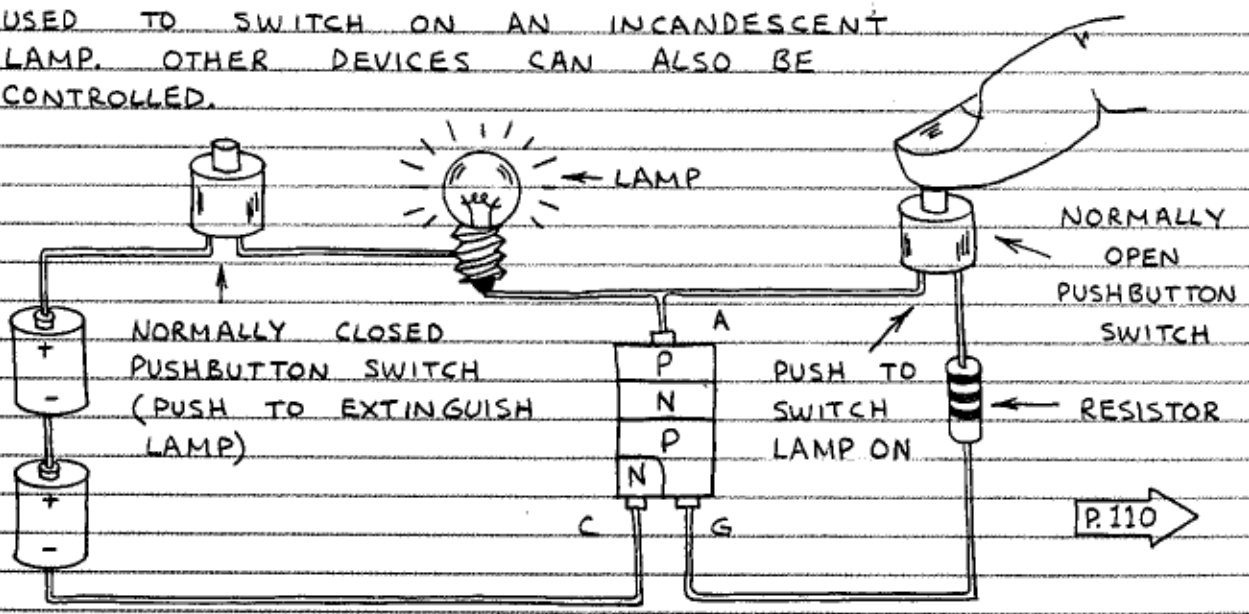 USED TO SWITCH ON AN INCANDESCENT
LAMP. OTHER DEVICES CAN ALSO BE
CONTROLLED.
LAMP
NORMALLY
OPEN
PUSHBUTTON
SWITCH
NORMALLY CLOSED
PUSHBUTTON SWITCH
(PUSH TO EXTINGUISH
LAMP)
A
P
N
P
N
C
G
PUSH TO
SWITCH
LAMP ON
RESISTOR
+
-
+
-
P.110